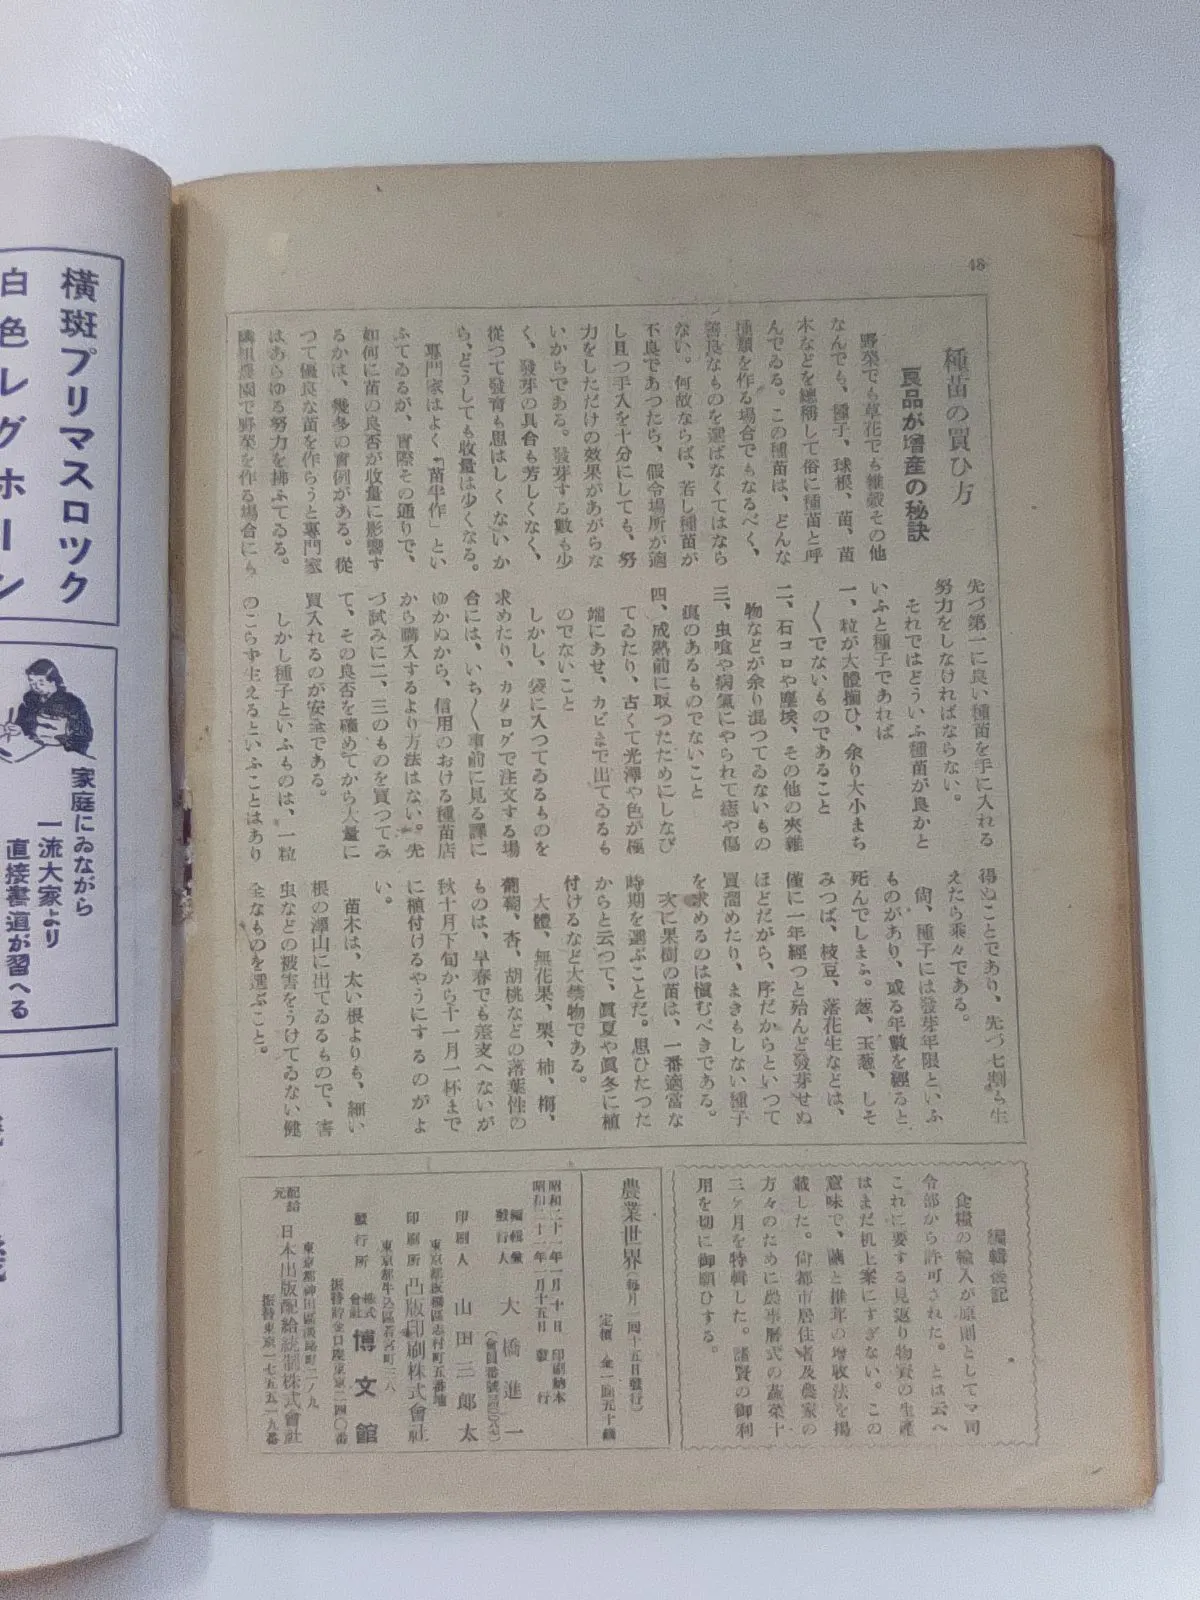 48
種苗の買ひ方
良品が增產の秘訣
野菜でも草花でも雜穀その他
なんでも、種子、球根、苗、苗
木などを總稱して俗に種苗と呼
んでゐる。この種苗は、どんな
種類を作る場合でもなるべく、
善良なものを選ばなくてはなら
ない。何故ならば、若し種苗が
不良であつたら、假令場所が適
し且つ手入を十分にしても、努
力をしただけの效果があがらな
いからである。發芽する數も少
く、發芽の具合も芳しくなく、
從つて發育も思はしくないか
ら、どうしても收量は少くなる。
專門家はよく「苗半作」とい
ふてゐるが、實際その通りで、
如何に苗の良否が收量に影響す
るかは、幾多の實例がある。從
つて優良な苗を作らうと專門家
はあらゆる努力を拂ふてゐる。
隣組農園で野菜を作る場合にも
先づ第一に良い種苗を手に入れる
努力をしなければならない。
それではどういふ種苗が良かと
いふと種子であれば
一、粒が大體揃ひ、余り大小まち
〱でないものであること
二、石コロや塵埃、その他の夾雜
物などが余り混つてゐないもの
三、虫喰や病氣にやられて瘧や傷
痕のあるものでないこと
四、成熟前に取つたためにしなび
てゐたり、古くて光澤や色が極
端にあせ、カビまで出てゐるも
のでないこと
しかし、袋に入つてゐるものを
求めたり、カタログで注文する場
合には、いち〱事前に見る譯に
ゆかぬから、信用のおける種苗店
から購入するより方法はない。先
づ試みに二、三のものを買つてみ
て、その良否を確めてから大量に
買入れるのが安全である。
しかし種子といふものは、一粒
のこらず生えるといふことはあり
得ぬことであり、先づ七割も生
えたら乘々である。
尙、種子には發芽年限といふ
ものがあり、或る年數を經ると
死んでしまふ。葱、玉葱、しそ
みつば、枝豆、落花生などは、
僅に一年經つと殆んど發芽せぬ
ほどだから、序だからといつて
買溜めたり、まきもしない種子
を求めるのは愼むべきである。
次に果樹の苗は、一番適當な
時期を選ぶことだ。思ひたつた
からと云つて、眞夏や眞冬に植
付けるなど大禁物である。
大體、無花果、栗、柿、梅、
葡萄、杏、胡桃などの落葉性の
ものは、早春でも差支へないが
秋十月下旬から十一月一杯まで
に植付けるやうにするのがよ
い。
苗木は、太い根よりも、細い
根の澤山に出てゐるもので、害
虫などの被害をうけてゐない健
全なものを選ぶこと。
編輯後記
食糧の輸入が原則としてマ司
令部から許可された。とは云へ
これに要する見返り物資の生產
はまだ机上案にすぎない。この
意味で、繭と椎茸の增收法を掲
載した。尙都市居住者及農家の
方々のために農事曆式の蔬菜十
二ヶ月を特輯した。諸賢の御利
用を切に御願ひする。
農業世界(每月一回十五日發行)
定價 金一圓五十錢
昭和二十一年一月十日 印刷納本
昭和二十一年一月十五日 發行
編輯兼發行人 大橋進一
印刷人 山田三郎太
東京都板橋區志村町五番地
印刷所 凸版印刷株式會社
東京都牛込區若宮町二八
發行所 株式會社 博文館
振替貯金口座東京二四〇番
東京都神田區淡路町二ノ九
配給元 日本出版配給統制株式會社
振替東京一七五五一九番
橫斑プリマスロツク
白色レグホーン
家庭にゐながら
一流大家より
直接書道が習へる